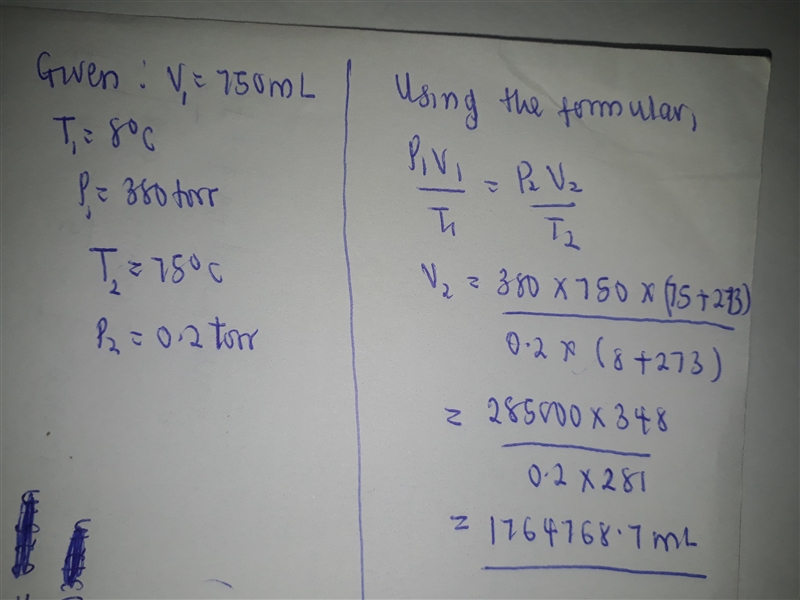 Given : V₁ = 750mL
T₁ = 8°C
P₁ = 380torr
T₂ = 75°C
P₂ = 0.2 torr
Using the formular,
P₁V₁ = P₂ V₂
T₁ T₂
V₂ = 380 × 750 × (75+273)
0.2 × (8+273)
= 285000 × 348
0.2 × 281
= 1764768.7 mL